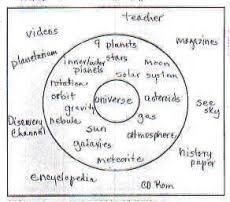 teacher
videos
magazines
planetarium
9 planets
stars
inner/outer
planets
moon
solar system
rotation
orbit
universe
asteroids
see
sky
gravity
gas
Discovery
Channel
nebula
sun
atmosphere
galaxies
history
paper
meteorite
encyclopedia
CD Rom